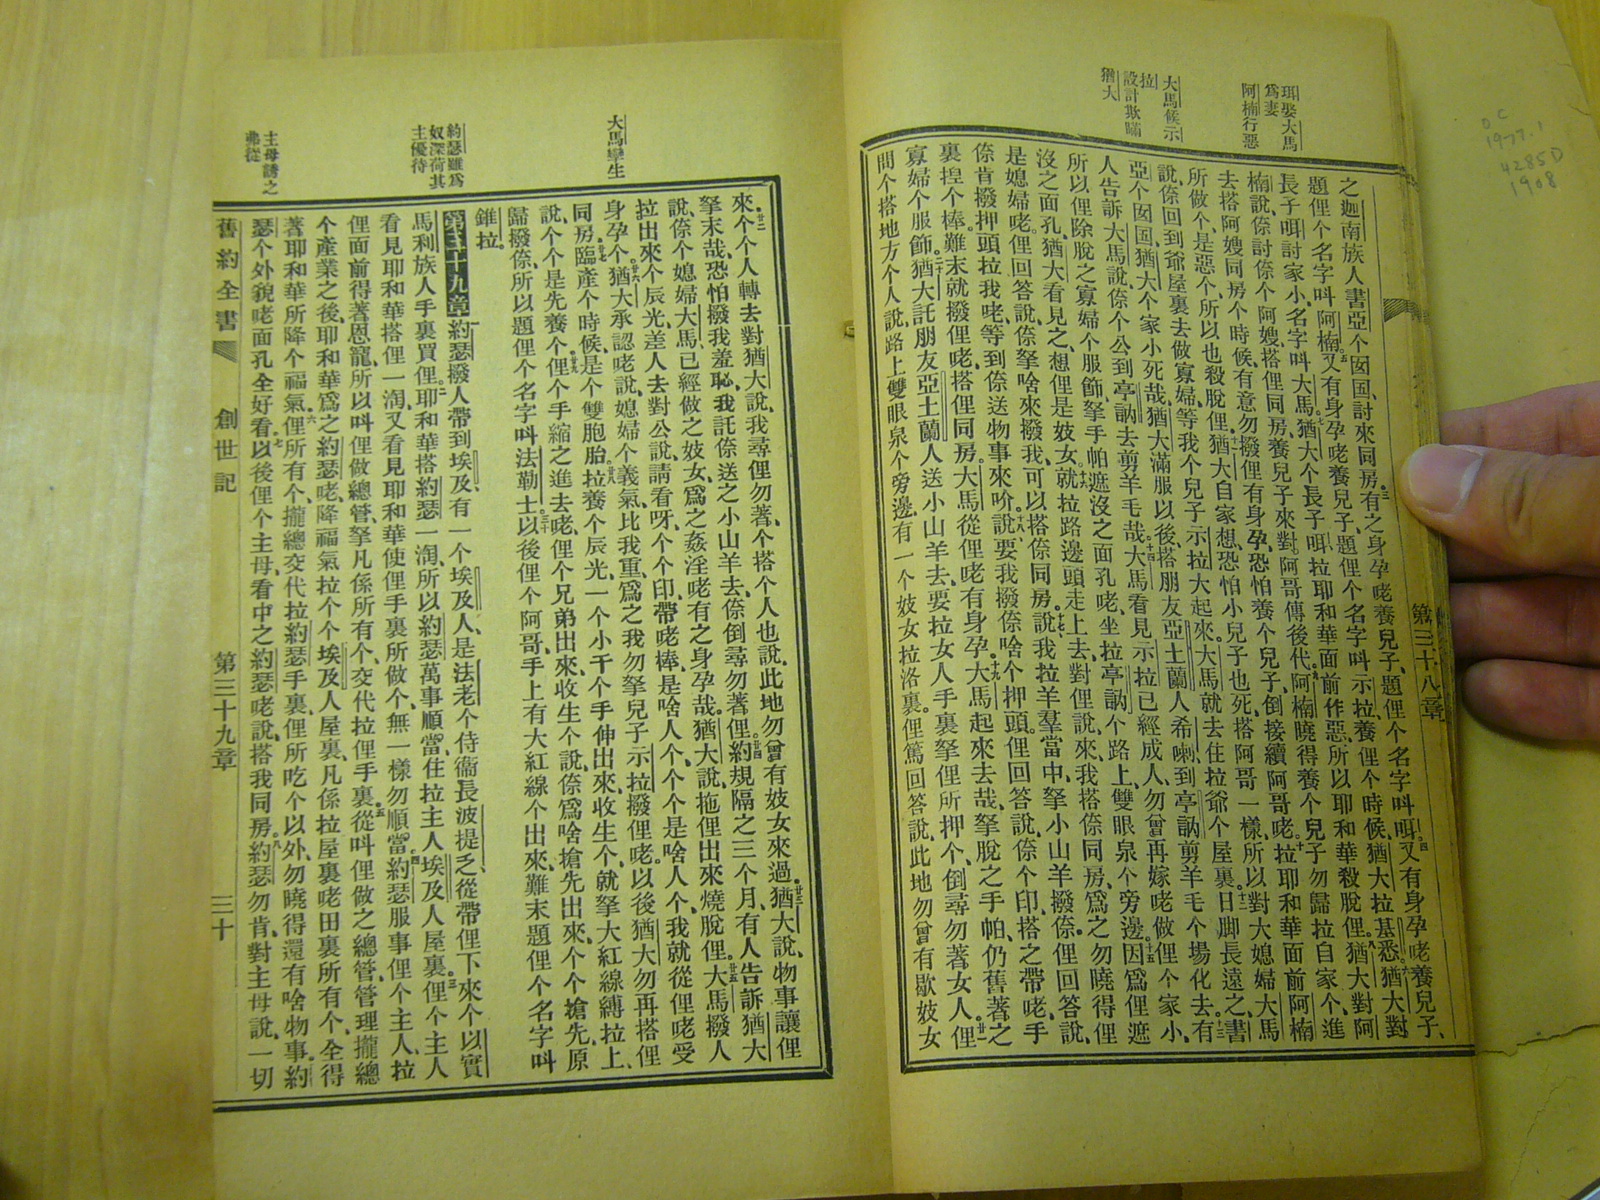 珥娶大馬
爲妻
阿楠行惡
大馬候示
拉
設計欺瞞
猶大
第三十八章
之迦南族人書亞个囡囯、討來同房、有之身孕咾養兒子、題俚个名字呌珥、又有身孕咾養兒子、
題俚个名字呌阿楠、又有身孕咾養兒子、題俚个名字呌示拉、養俚个時候、猶大拉基悉、猶大對
長子珥討家小、名字呌大馬、猶大个長子珥、拉耶和華面前作惡、所以耶和華殺脫俚、猶大對阿
楠說、㑚討㑚个阿嫂、搭俚同房、養兒子來對阿哥傳後代、阿楠曉得養个兒子勿歸拉自家个、進
去搭阿嫂同房个時候、有意勿撥俚有身孕、恐怕養个兒子、倒接續阿哥咾、拉耶和華面前、阿楠
所做个、是惡个、所以也殺脫俚、猶大自家想、恐怕小兒子也死、搭阿哥一樣、所以對大媳婦大馬
說、㑚回到爺屋裏去做寡婦、等我个兒子示拉大起來、大馬就去住拉爺个屋裏、日脚長遠之、書
亞个囡囯、猶大个家小死哉、猶大滿服以後、搭朋友亞土蘭人希喇、到亭訥剪羊毛个場化去、有
人告訴大馬說、㑚个公到亭訥去剪羊毛哉、大馬看見示拉已經成人、勿曾再嫁咾做俚个家小、
所以俚除脫之寡婦个服飾、拏手帕遮沒之面孔咾、坐拉亭訥个路上、雙眼泉个旁邊、因爲俚遮
沒之面孔、猶大看見之、想俚是妓女、就拉路邊頭走上去、對俚說、來、我搭㑚同房、爲之勿曉得俚
是媳婦咾、俚回答說、㑚拏啥來撥我、可以搭㑚同房、說、我拉羊羣當中、拏小山羊撥㑚、俚回答說、
㑚肯撥押頭拉我咾、等到㑚送物事來吤、說、要我撥㑚啥个押頭、俚回答說、㑚个印、搭之帶咾、手
裏捏个棒、難末就撥俚咾、搭俚同房、大馬從俚咾有身孕、大馬起來去哉、拏脫之手帕、仍舊著之
寡婦个服飾、猶大託朋友亞土蘭人送小山羊去、要拉女人手裏拏俚所押个、倒尋勿著女人、俚
問个搭地方个人說、路上雙眼泉个旁邊、有一个妓女拉洛裏、俚篤回答說、此地勿曾有歇妓女
大馬孿生
約瑟雖爲
奴深荷其
主優待
主母誘之
弗從
來、个个人轉去對猶大說、我尋俚勿著、个搭个人也說、此地勿曾有妓女來過、猶大說、物事讓俚
拏末哉、恐怕撥我羞恥、我託㑚送之小山羊去、㑚倒尋勿著俚、約規隔之三个月、有人告訴猶大
說、㑚个媳婦大馬已經做之妓女、爲之姦淫咾有之身孕哉、猶大說、拖俚出來燒脫俚、大馬撥人
拉出來个辰光、差人去對公說、請看呀、个个印、帶咾棒、是啥人个、个个是啥人个、我就從俚咾受
身孕个、猶大承認咾說、媳婦个義氣比我重、爲之我勿拏兒子示拉撥俚咾、以後猶大勿再搭俚
同房、臨產个時候、是个雙胞胎拉、養个辰光、一个小囝个手伸出來、收生个、就拏大紅線縛拉上、
說、个个是先養个、俚个手縮之進去咾、俚个兄弟出來、收生个說、㑚爲啥搶先出來、个个搶先、原
歸撥㑚、所以題俚个名字呌法勒士、以後俚个阿哥、手上有大紅線个出來、難末題俚个名字呌
錐拉。
第三十九章 約瑟撥人帶到埃及、有一个埃及人、是法老个侍衞長波提乏、從帶俚下來个以實
馬利族人手裏買俚、耶和華搭約瑟一淘、所以約瑟萬事順當、住拉主人埃及人屋裏、俚个主人
看見耶和華搭俚一淘、又看見耶和華使俚手裏所做个、無一樣勿順當、約瑟服事俚个主人、拉
俚面前得著恩寵、所以呌俚做總管、拏凡係所有个、交代拉俚手裏、從呌俚做之總管、管理攏總
个產業之後、耶和華爲之約瑟咾、降福氣拉个个埃及人屋裏、凡係拉屋裏咾田裏所有个、全得
著耶和華所降个福氣、俚所有个、攏總交代拉約瑟手裏、俚所吃个以外、勿曉得還有啥物事、約
瑟个外貌咾面孔全好看、以後俚个主母、看中之約瑟咾說、搭我同房、約瑟勿肯、對主母說、一切
舊約全書 創世記 第三十九章 三十